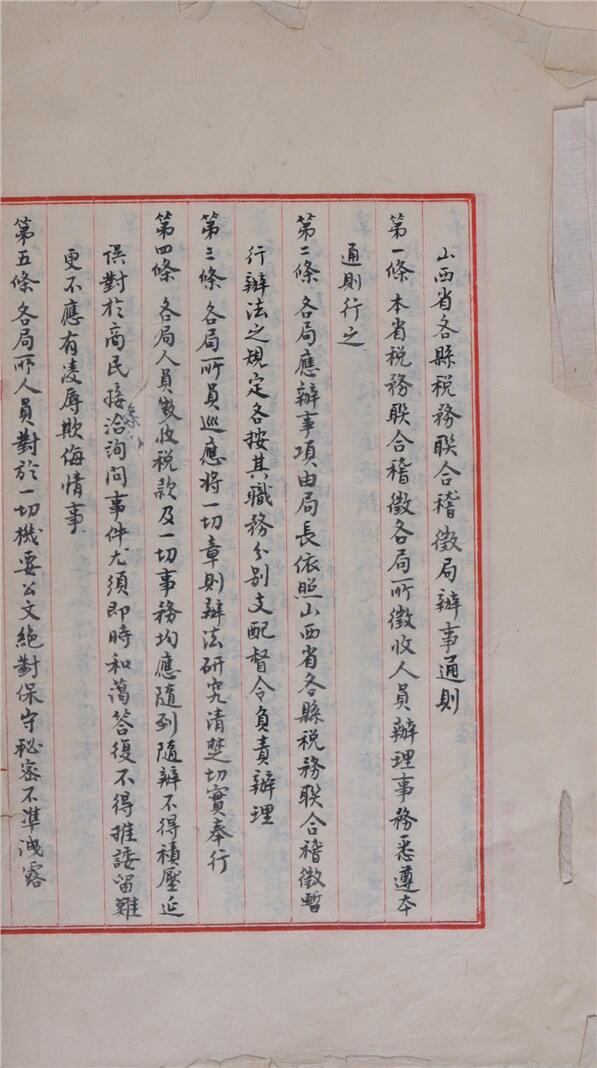 山西省各縣税務聯合稽徵局辦事通則
第一條 本省税務聯合稽徵各局所徵收人員辦理事務悉遵本
通則行之
第二條 各局應辦事項由局長依照山西省各縣税務聯合稽徵暫
行辦法之規定各按其職務分别支配督令負責辦理
第三條 各局所員巡應将一切章則辦法研究清楚切實奉行
第四條 各局人員徴收税款及一切事務均應隨到隨辦不得積壓延
误對於商民接洽詢问事件尤須即時和藹答復不得推諉留難
更不應有凌辱欺侮情事
第五條 各局所人員對於一切機要公文絶對保守秘密不準洩露